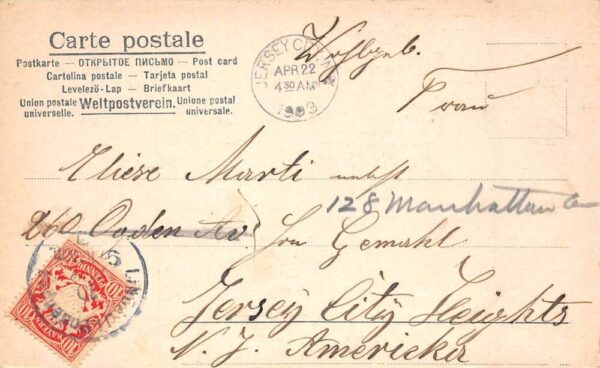 Carte postale
Postkarte — ОТКРЫТОЕ ПИСЬМО — Post card
Cartolina postale — Tarjeta postal
Levelező-Lap — Briefkaart
Union postale Weltpostverein. Unione postal
universelle. universale.
JERSEY CITY, N.J.
APR 22
4 30 AM
1903
Wohlgeb.
Frau
Eliese Marti nebst
128 Manhattan
260 Ogden Av. Herrn Gemahl
Jersey City Heights
N. J. Americka
10
10